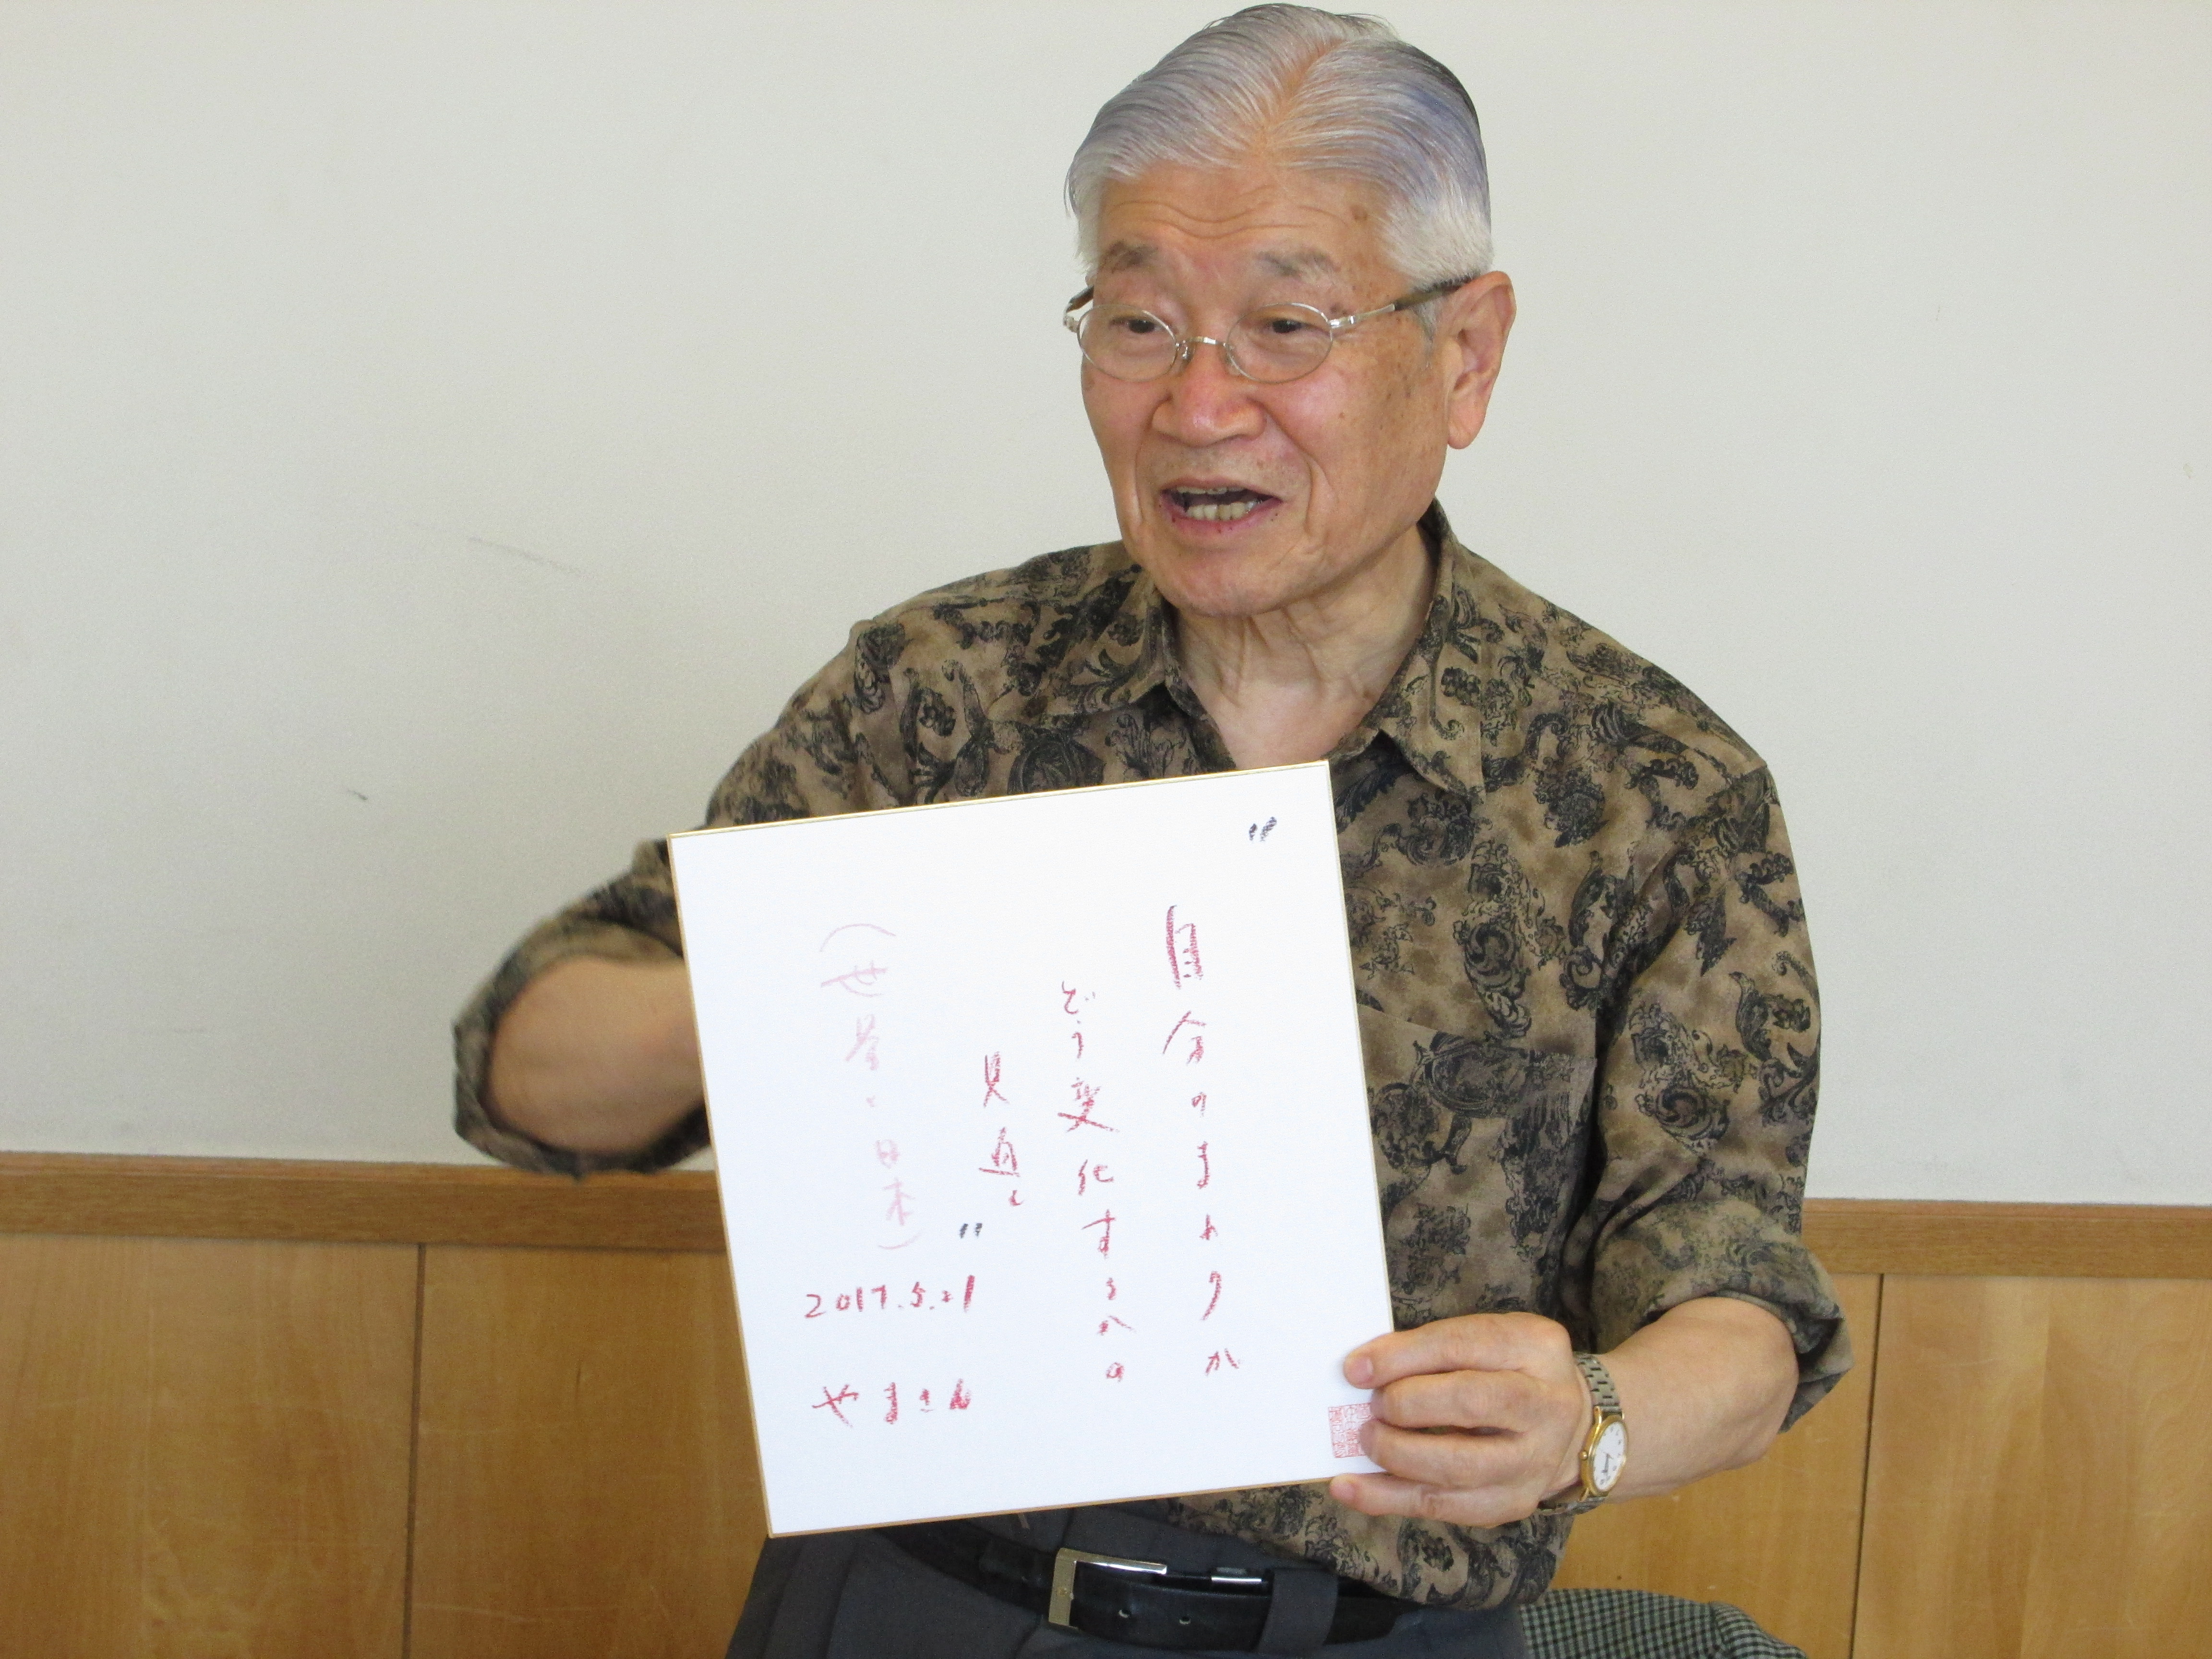 "自分のまわりが
どう変化するかの
見直し"
(世界と日本)
2017.5.21
やまさん